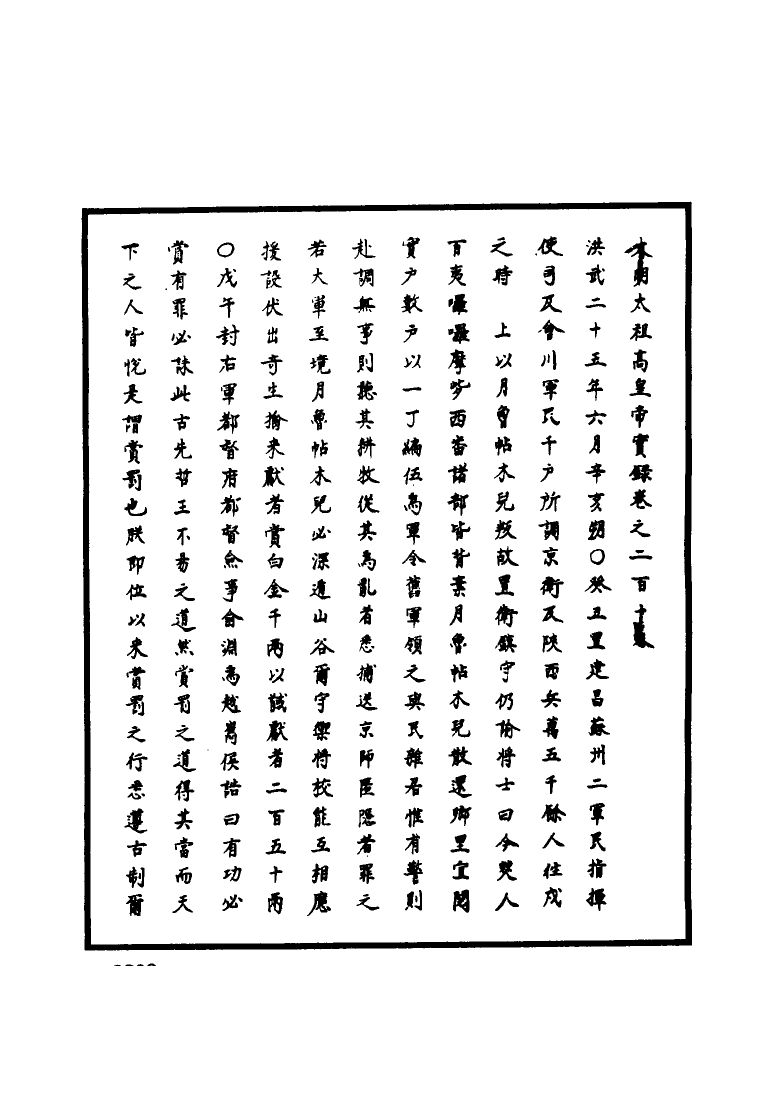 本朝太祖高皇帝實錄卷之二百十八
洪武二十五年六月辛亥朔〇癸丑置建昌蘇州二軍民指揮
使司及會川軍民千戶所調京衛及陝西兵萬五千餘人往戍
之時　上以月魯帖木兒叛故置衛鎮守仍諭將士曰今僰人
百夷囉囉摩些西畨諸部皆背棄月魯帖木兒散還鄉里宜閱
實戶數戶以一丁編伍為軍令舊軍領之與民雜居惟有警則
赴調無事則聽其耕牧從其為亂者悉捕送京師匿隱者罪之
若大軍至境月魯帖木兒必深遁山谷爾守禦將校能互相應
援設伏出奇生擒來獻者賞白金千兩以馘獻者二百五十兩
〇戊午封右軍都督府都督僉事俞淵為越嶲侯誥曰有功必
賞有罪必誅此古先哲王不易之道然賞罰之道得其當而天
下之人皆悅是謂賞罰也朕即位以來賞罰之行悉遵古制爾